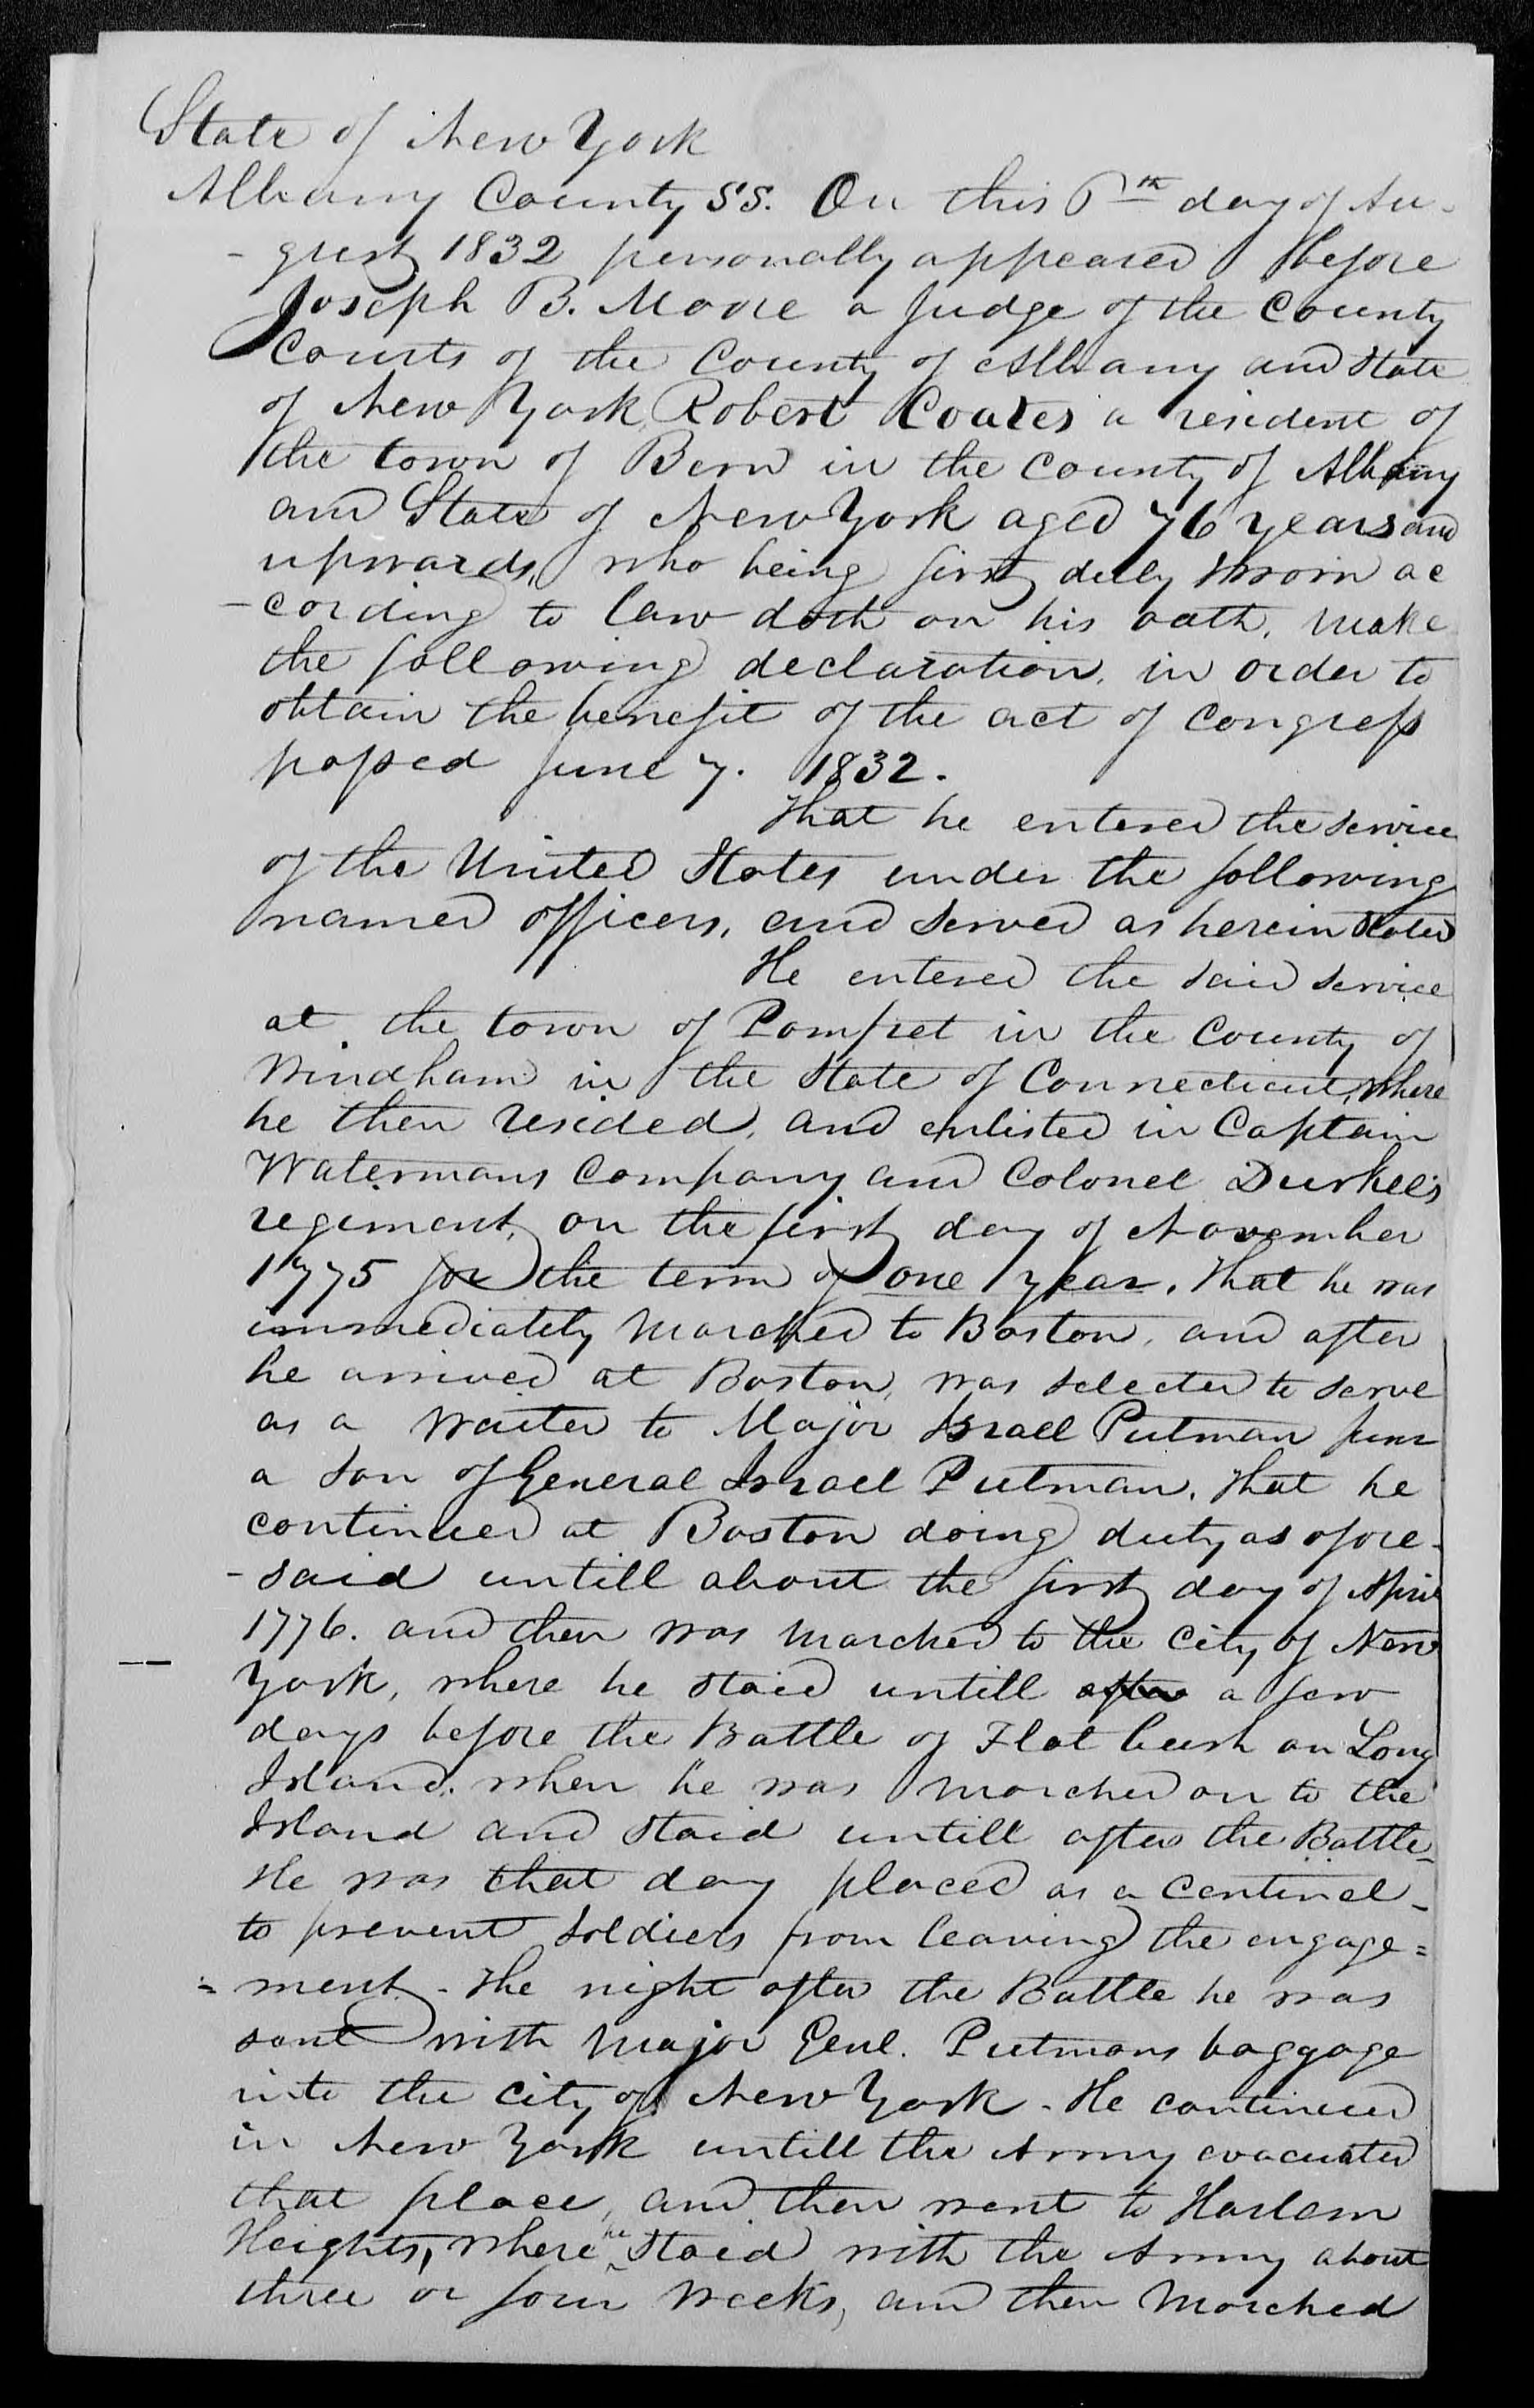 State of New York
Albany County SS. On this 6th day of Au-
-gust 1832 personally appeared before
Joseph B. Moore a Judge of the County
Courts of the County of Albany and State
of New York, Robert Coates a resident of
the town of Bern in the county of Albany
and State of New York aged 76 years and
upwards, who being first duly sworn ac
-cording to law doth on his oath, make
the following declaration, in order to
obtain the benefit of the act of congress
passed June 7. 1832.
That he entered the service
of the United States under the following
named officers, and served as herein stated
He entered the said service
at the town of Pomfret in the county of
Windham in the State of Connecticut, where
he then resided, and enlisted in Captain
Watermans Company and Colonel Durkee's
regiment, on the first day of November
1775 for the term of one year. That he was
immediately marched to Boston, and after
he arrived at Boston, was selected to serve
as a waiter to Major Israel Putman Junr
a son of General Israel Putman. That he
continued at Boston doing duty as afore-
-said untill about the first day of April
1776. and then was marched to the City of New
York, where he staid untill after a few
days before the Battle of Flat bush on Long
Island. when he was marched on to the
Island and staid untill after the Battle-
He was that day placed as a centinel-
to prevent soldiers from leaving the engage=
=ment - The night after the Battle he was
sent with Major Genl. Putmans baggage
into the city of New York - He continued
in New York untill the Army evacuated
that place, and then went to Harlem
Heights, where he staid with the Army about
three or four weeks, and then marched